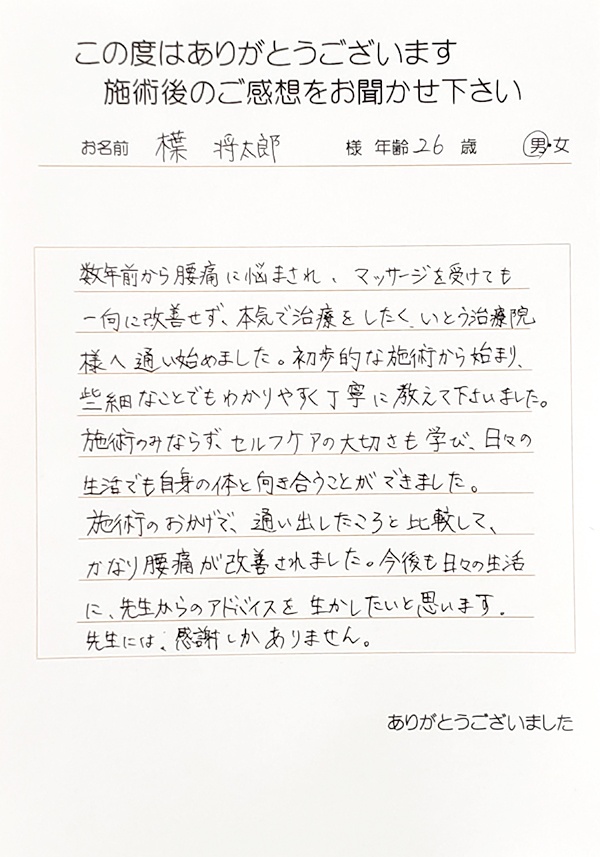 この度はありがとうございます
施術後のご感想をお聞かせ下さい
お名前 様 将太郎 様 年齢 26 歳 男・女
数年前から腰痛に悩まされ、マッサージを受けても
一向に改善せず、本気で治療をしたく、いとう治療院
様へ通い始めました。初歩的な施術から始まり、
些細なことでもわかりやすく丁寧に教えて下さいました。
施術のみならず、セルフケアの大切さも学び、日々の
生活でも自身の体と向き合うことができました。
施術のおかげで、通い出したころと比較して、
かなり腰痛が改善されました。今後も日々の生活
に、先生からのアドバイスを生かしたいと思います。
先生には、感謝しかありません。
ありがとうございました